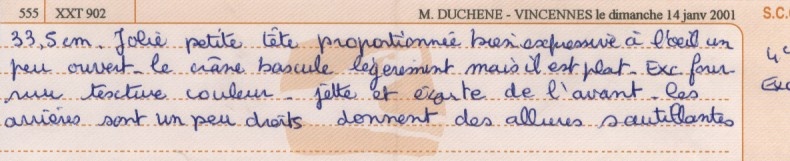 555 XXT 902 M. DUCHENE - VINCENNES le dimanche 14 janv 2001 S.C.
33,5cm. Jolie petite tête proportionnée bien expressive à l'oeil un
peu ouvert. le crâne bascule légerement mais il est plat. Exc four
rure texture couleur. jette et écarte de l'avant. les
arrières sont un peu droits donnent des allures sautillantes